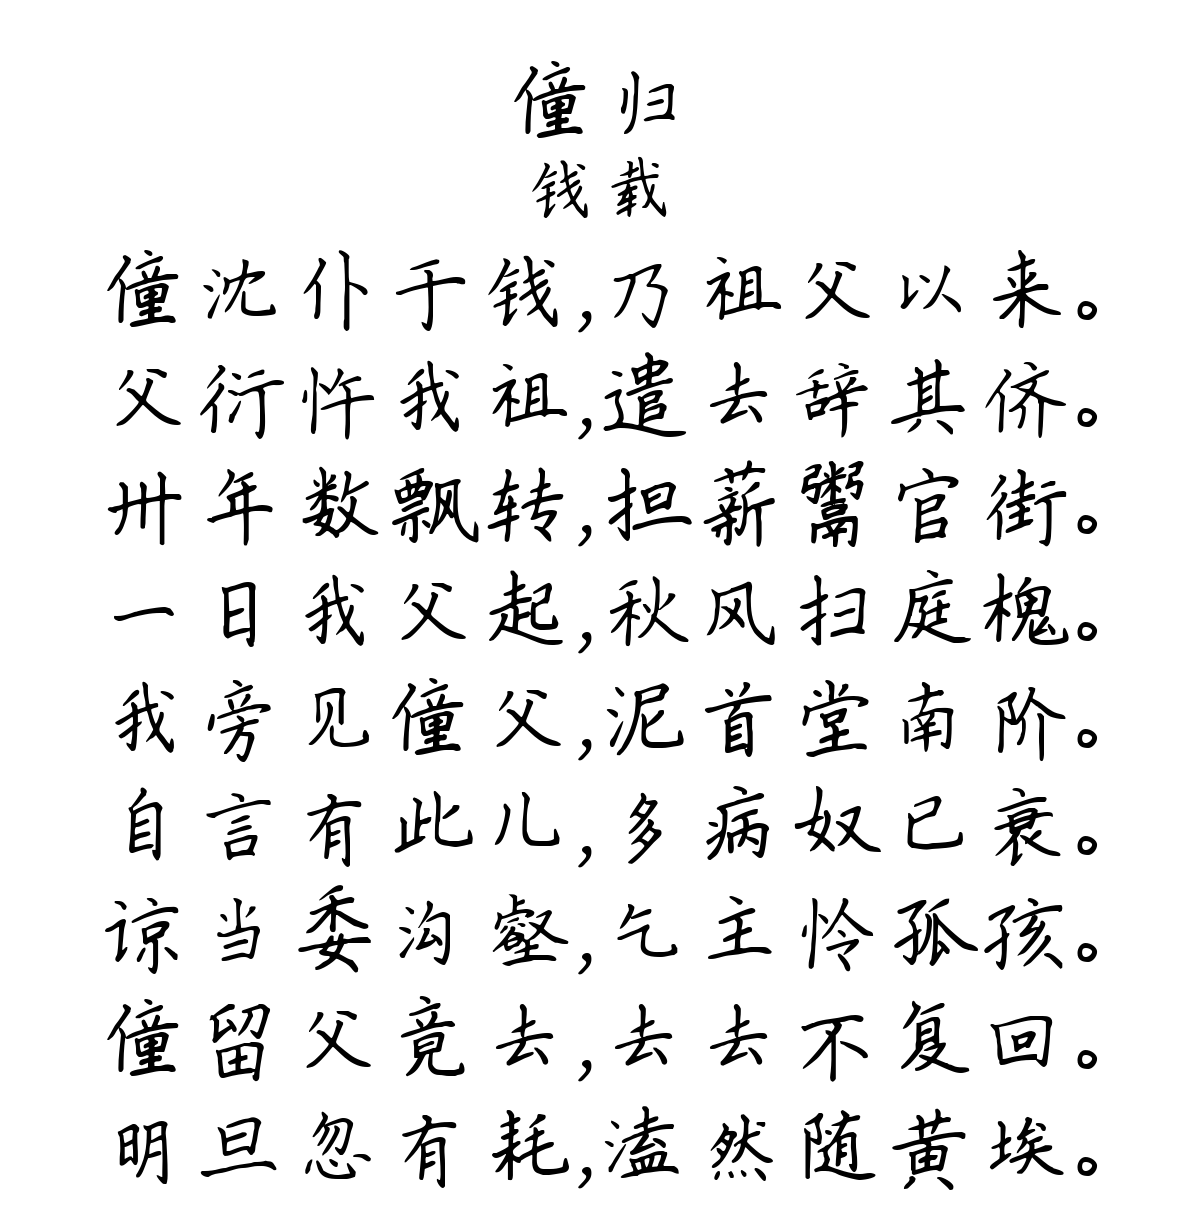 僮归
钱载
僮沈仆于钱,乃祖父以来。
父衍忤我祖,遣去辞其侪。
卅年数飘转,担薪鬻官街。
一日我父起,秋风扫庭槐。
我旁见僮父,泥首堂南阶。
自言有此儿,多病奴已衰。
谅当委沟壑,乞主怜孤孩。
僮留父竟去,去去不复回。
明旦忽有耗,溘然随黄埃。